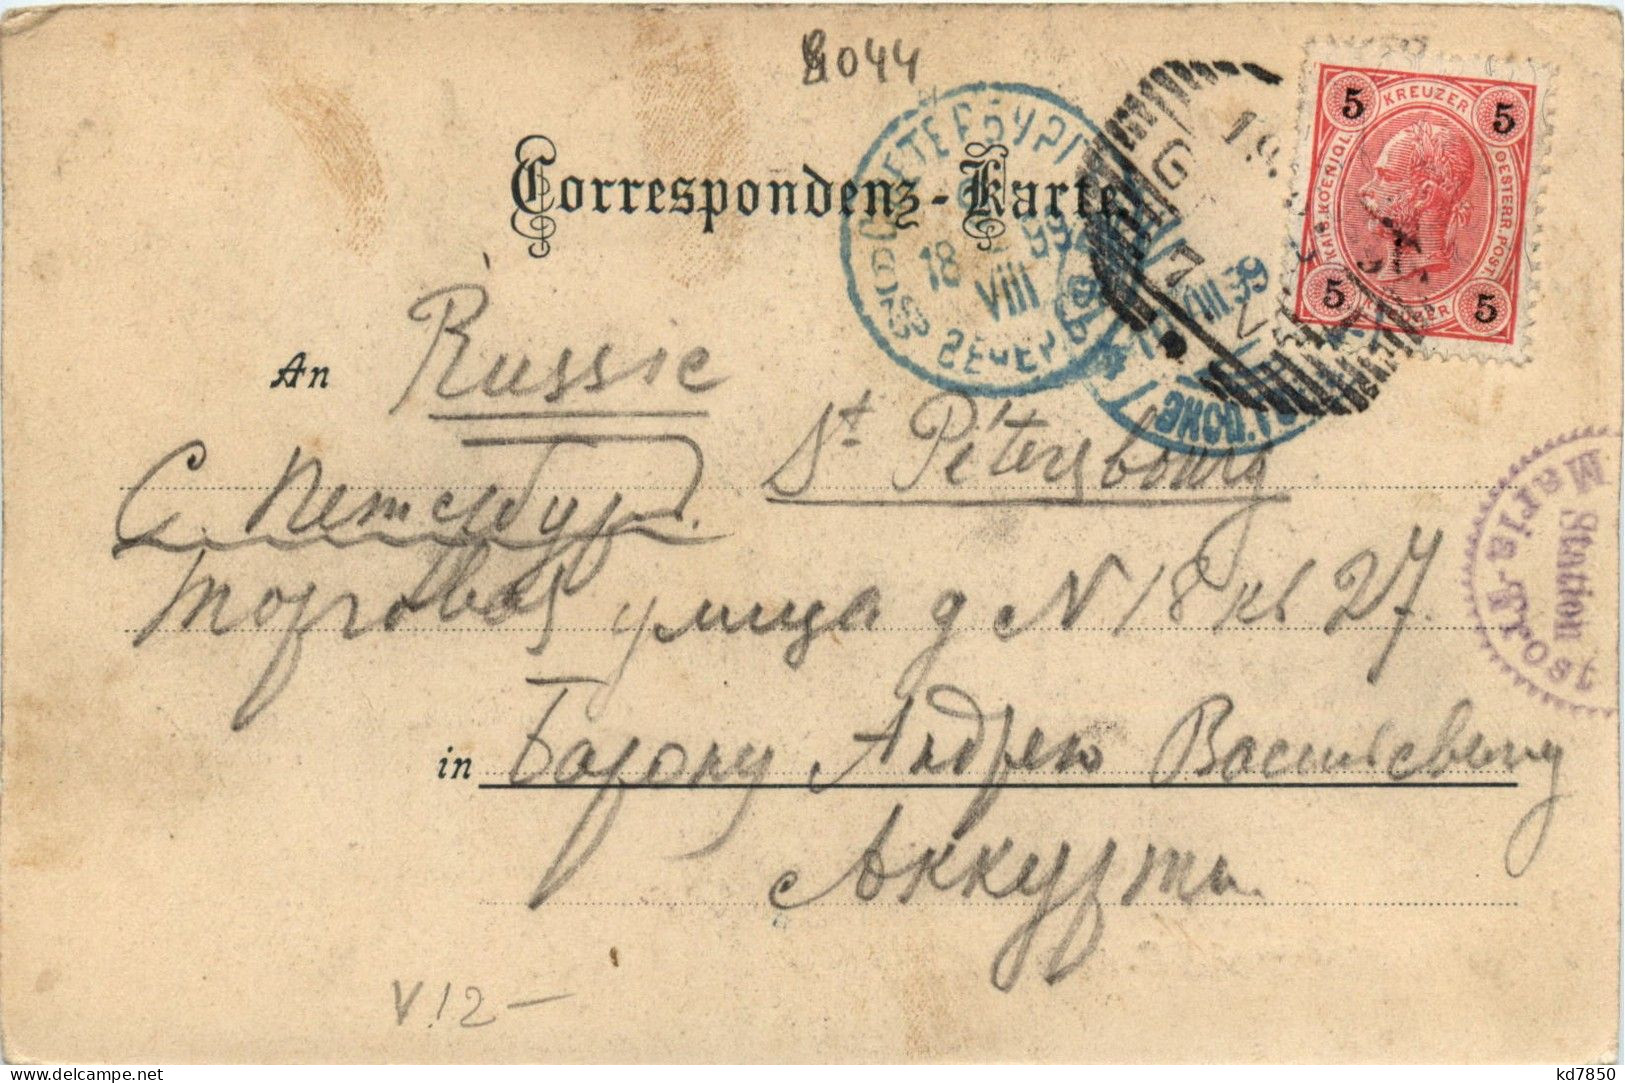 8044
Correspondenz-Karte
5 KREUZER 5
KAIS. KOENIGL. OESTERR. POST.
5 KREUZER 5
С.ПЕТЕРБУРГ
18 VIII 99
VIII 99
An Russie
St Pétersbourg
С. Петербург.
Торговая улица д N 18 кв 27.
in Барону Андрею Васильевичу
Аккурти.
Station
Maria-Trost
V.12-
kd7850